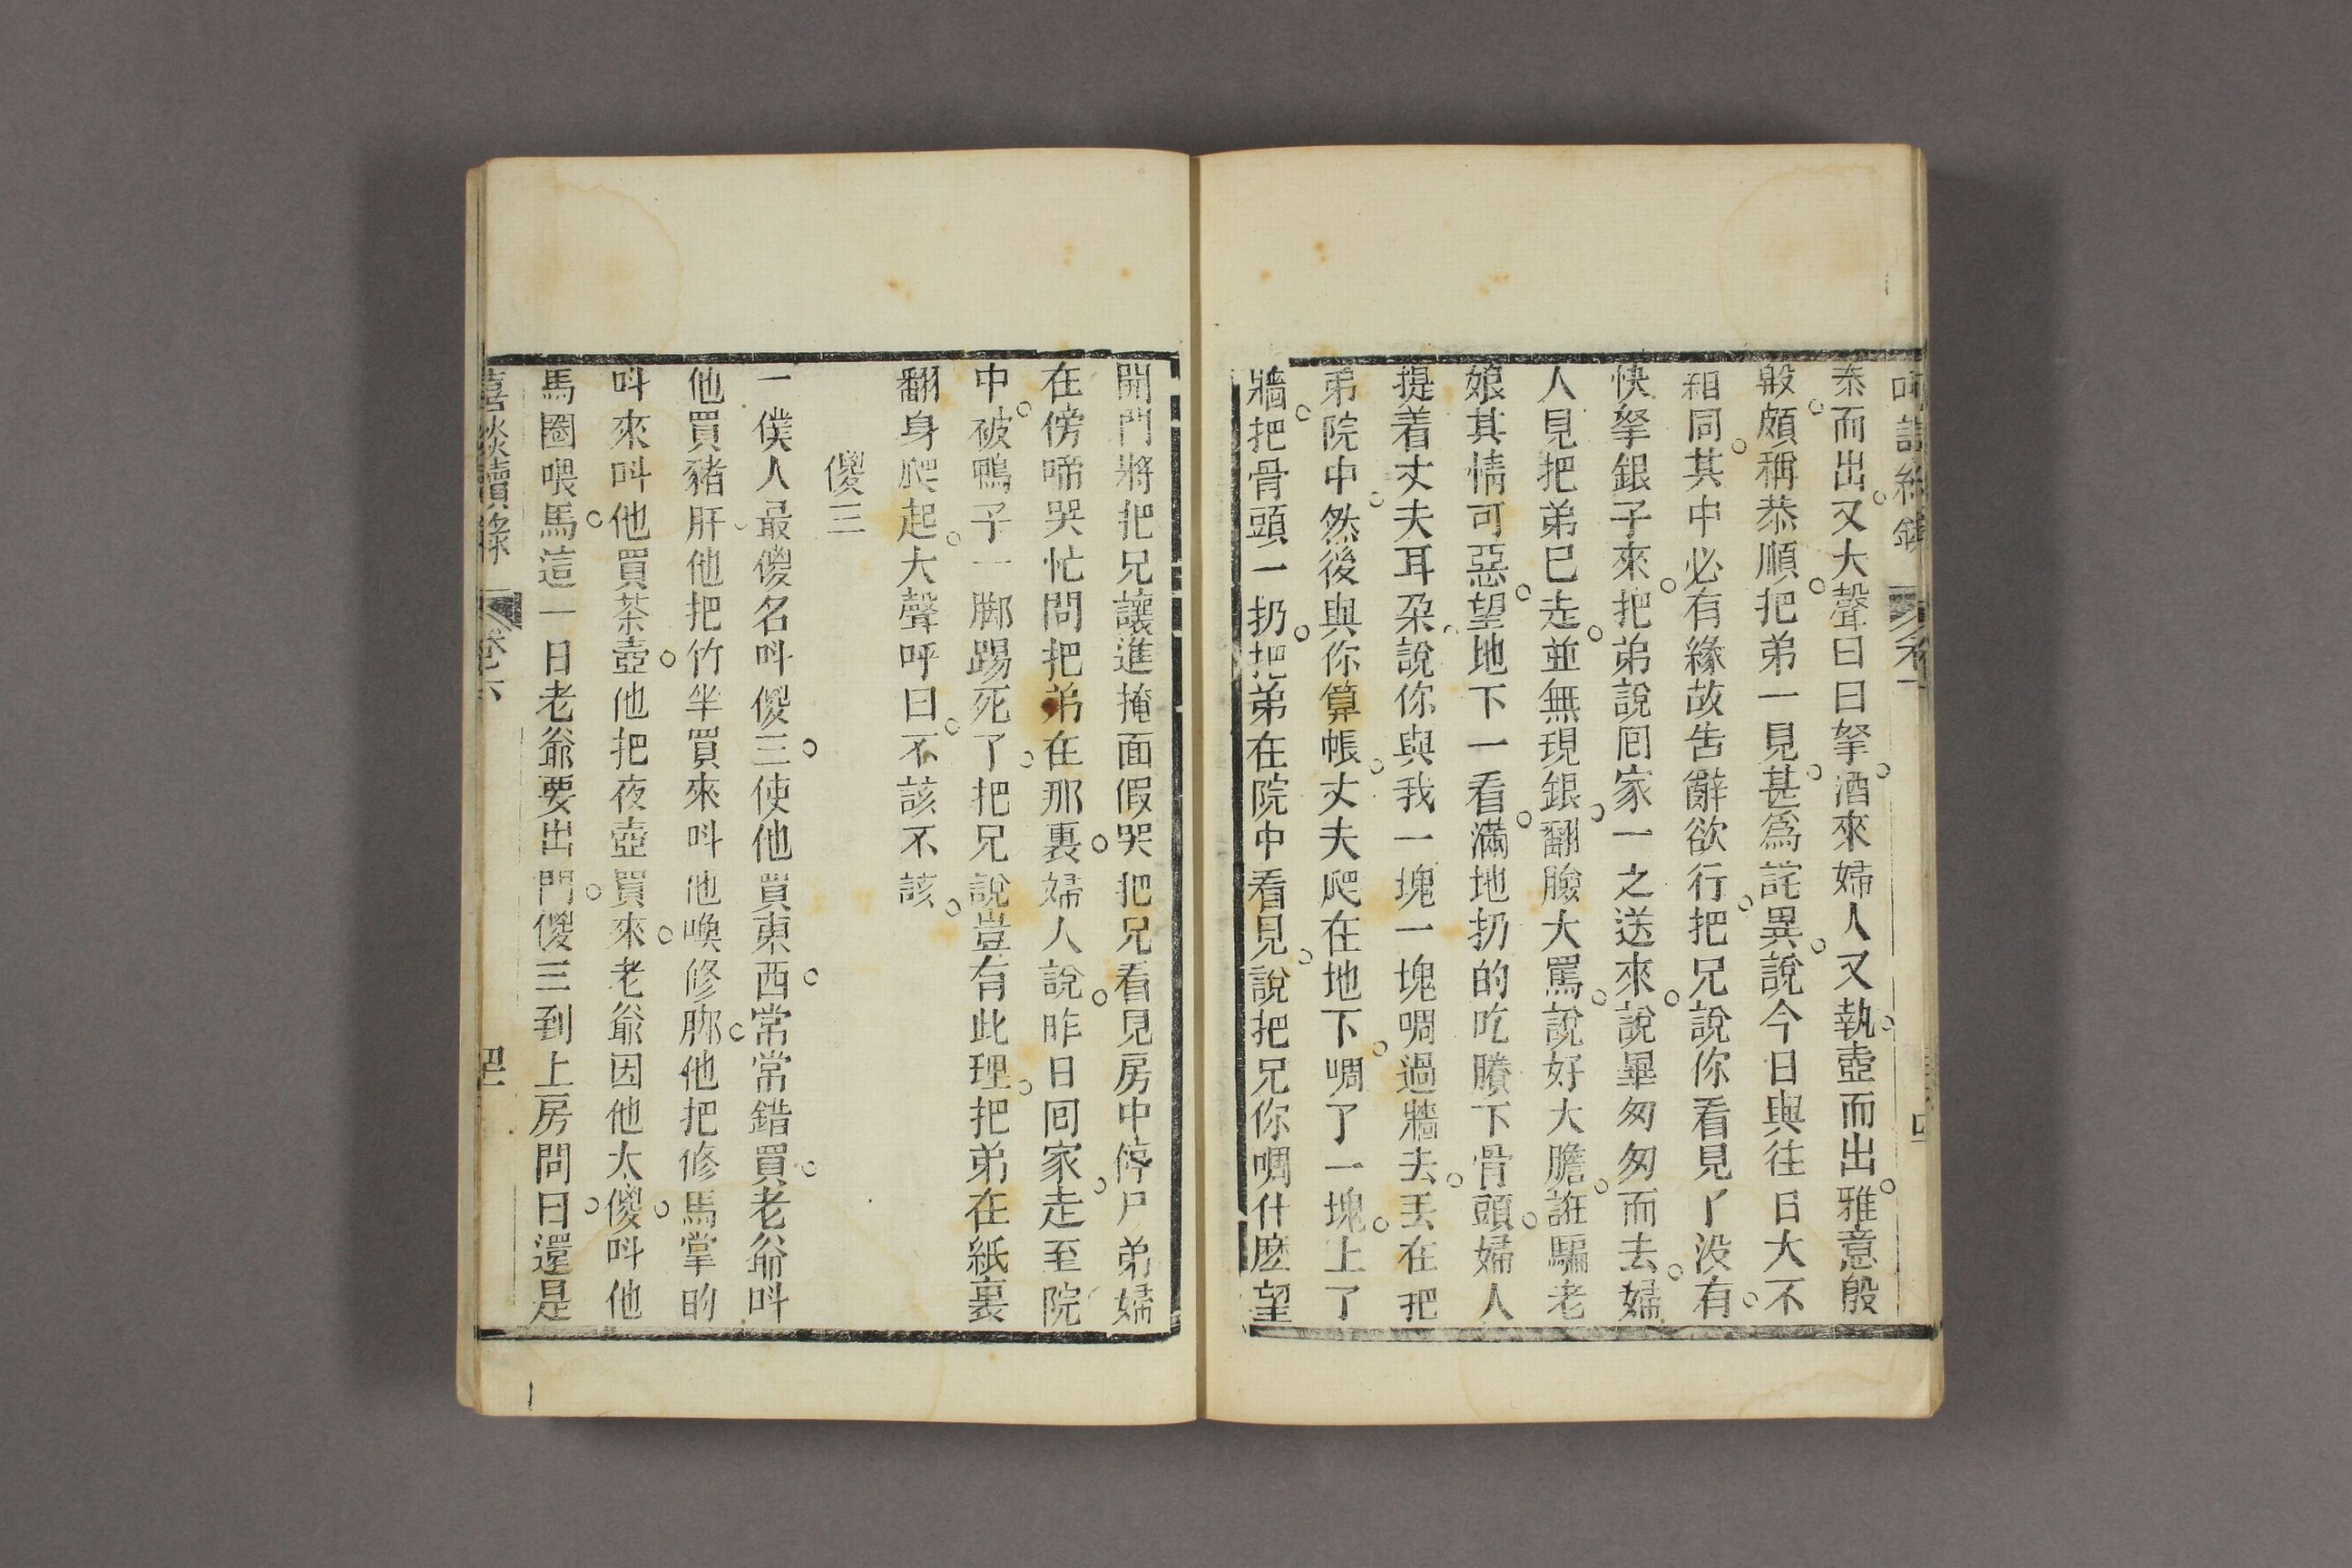 桼而出又大聲曰曰拏酒來婦人又執壺而出雅意殷
殷頗稱恭順把弟一見甚為詫異說今日與往日大不
相同其中必有緣故告辭欲行把兄說你看見了没有
快拏銀子來把弟說囘家一之送來說畢匆匆而去婦
人見把弟已走並無現銀翻臉大罵說好大膽誑騙老
娘其情可惡望地下一看滿地扔的吃賸下骨頭婦人
提着丈夫耳朶說你與我一塊一塊啁過牆去丟在把
弟院中然後與你算帳丈夫爬在地下啁了一塊上了
牆把骨頭一扔把弟在院中看見說把兄你啁什麽望
開門將把兄讓進掩面假哭把兄看見房中停尸弟婦
在傍啼哭忙問把弟在那裏婦人說昨日囘家走至院
中破鴨子一脚踢死了把兄說豈有此理把弟在紙裏
翻身爬起大聲呼曰不該不該
傻三
一僕人最傻名呌傻三使他買東西常常錯買老爺呌
他買豬肝他把竹竿買來呌他喚修脚他把修馬掌的
呌來呌他買茶壺他把夜壺買來老爺因他太傻呌他
馬圈喂馬這一日老爺要出門傻三到上房問曰還是
喜談續錄 卷六